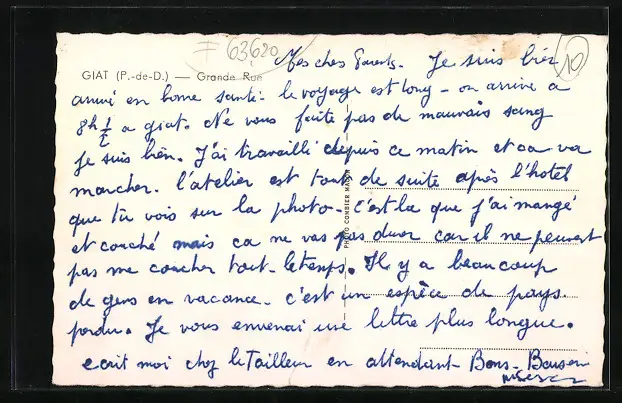 F 63620
10
GIAT (P.-de-D.) — Grande Rue
Mes chers Parents. Je suis bien
arrivé en bonne santé - le voyage est long - on arrive a
8h 1/2 a giat. Ne vous faite pas de mauvais sang
Je suis bien. J'ai travaillé depuis ce matin et ca va
marcher. l'atelier est tout de suite après l'hotel
que tu vois sur la photo - c'est la que j'ai mangé
et couché mais ca ne vas pas durer car il ne peuvent
pas me coucher tout - le temps. Il y a beaucoup
de gens en vacance - c'est un espèce de pays
perdu. Je vous enverrai une lettre plus longue.
ecrit moi chez le Tailleur en attendant - Bons - Baisers
PHOTO COMBIER MACON